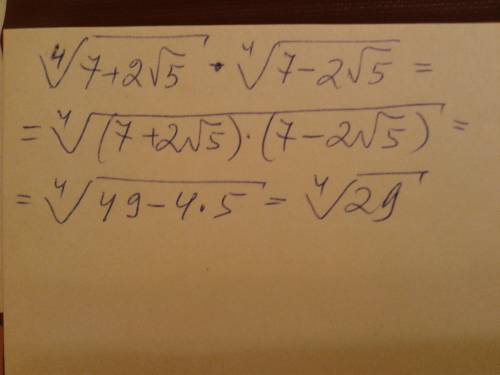 ⁴√(7+2√5) · ⁴√(7-2√5) =
= ⁴√((7+2√5)·(7-2√5)) =
= ⁴√(49-4·5) = ⁴√29